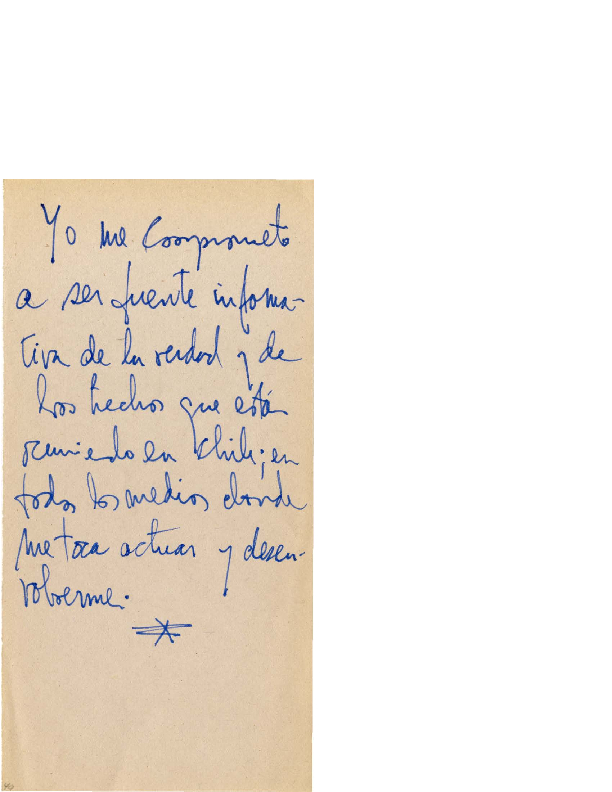 Yo me Comprometo
a ser fuente infoma-
tiva de la verdad y de
los hechos que están
ocurriendo en Chile; en
todos los medios donde
me toca actuar y desen-
volverme.